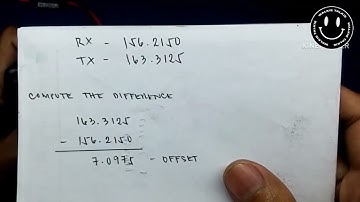 RX - 156.2150
TX - 163.3125
COMPUTE THE DIFFERENCE
163.3125
- 156.2150
7.0975 - OFFSET